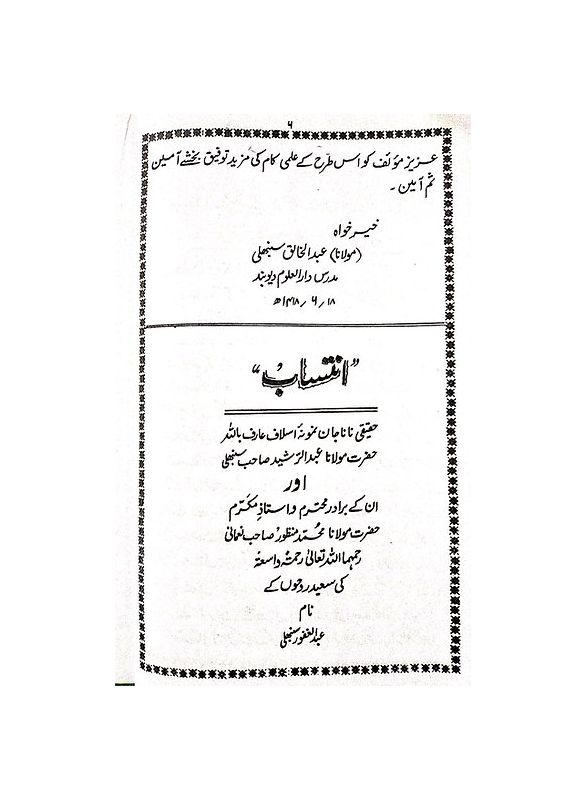 ۶
عزیز مؤلف کو اس طرح کے علمی کام کی مزید توفیق بخشے آمین
ثم آمین۔
خیر خواہ
(مولانا) عبدالخالق سنبھلی
مدرس دارالعلوم دیوبند
۱۸؍۶؍۱۴۱۸ھ
”انتساب“
حقیقی نانا جان نمونۂ اسلاف عارف باللہ
حضرت مولانا عبدالرشید صاحب سنبھلی
اور
ان کے برادر محترم و استاذِ مکرّم
حضرت مولانا محمّد منظور صاحب نعمانی
رحمہما اللہ تعالیٰ رحمۃً واسعۃ
کی سعید روحوں کے
نام
عبدالغفور سنبھلی